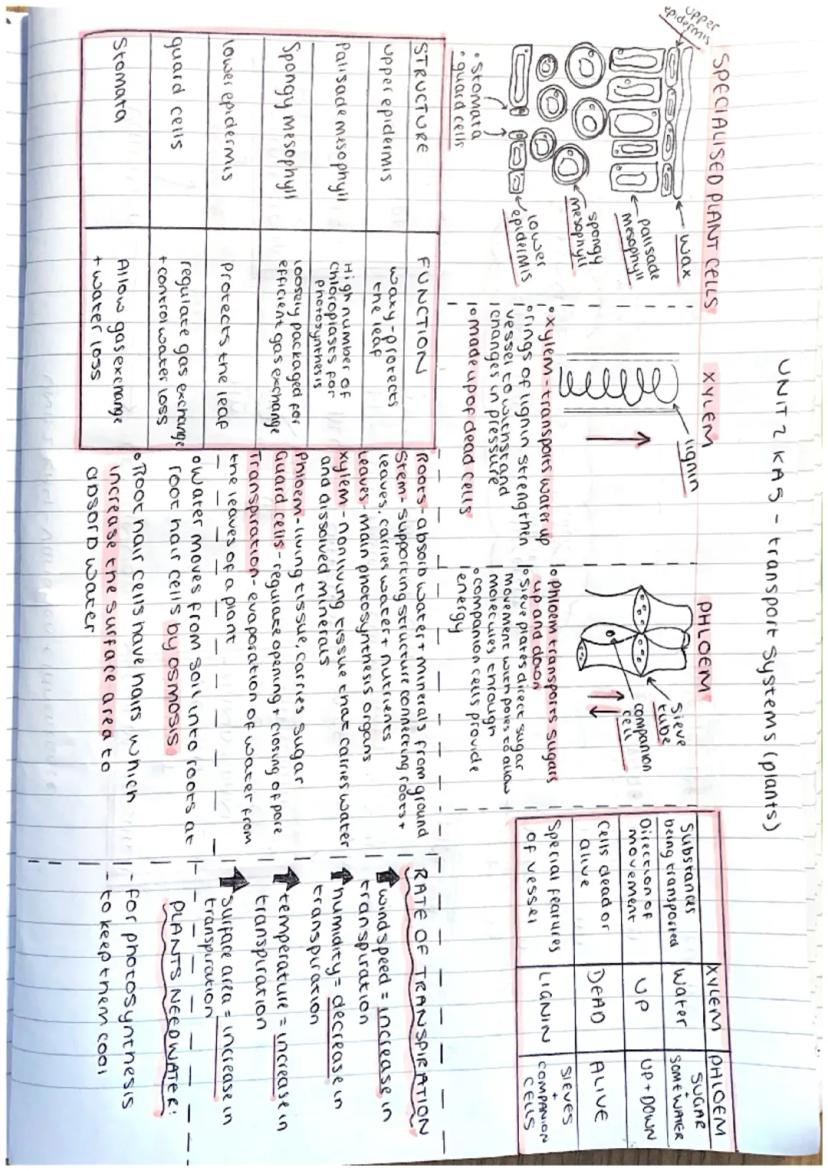 UNIT 2 KA5 - transport systems (plants)
SPECIALISED PLANT CELLS
upper
epidermis
wax
palisade
mesophyll
spongy
mesophyll
lower
epidermis
• stomata
• guard cells
XYLEM
lignin
• xylem - transports water up
• rings of lignin strengthen
vessel to withstand
changes in pressure
• made up of dead cells
PHLOEM
sieve
tube
companion
cell
• Phloem transports sugars
up and down
• Sieve plates direct sugar
movement with pores to allow
molecules through
• companion cells provide
energy
XYLEM PHLOEM
Substances
being transported
Water
SUGAR
+
SOME WATER
Direction of
movement
UP
UP + DOWN
Cells dead or
alive
DEAD
ALIVE
Special features
of vessel
LIGNIN
SIEVES
+
COMPANION
CELLS
STRUCTURE FUNCTION
upper epidermis
waxy - protects
the leaf
Palisade mesophyll
High number of
chloroplasts for
photosynthesis
Spongy mesophyll
loosely packaged for
efficient gas exchange
lower epidermis
Protects the leaf
guard cells
regulate gas exchange
+ control water loss
Stomata
Allow gas exchange
+ water loss
Roots - absorb water + minerals from ground
Stem - supporting structure connecting roots +
leaves. carries water + nutrients
Leaves - main photosynthesis organs
xylem - non living tissue that carries water
and dissolved minerals
Phloem - living tissue, carries sugar
Guard cells - regulate opening + closing of pore
Transpiration - evaporation of water from
the leaves of a plant
• Water moves from soil into roots at
root hair cells by osmosis
• Root hair cells have hairs which
increase the surface area to
absorb water
RATE OF TRANSPIRATION
windspeed = increase in
transpiration
humidity = decrease in
transpiration
temperature = increase in
transpiration
surface area = increase in
transpiration
PLANTS NEED WATER:
- for photosynthesis
- to keep them cool